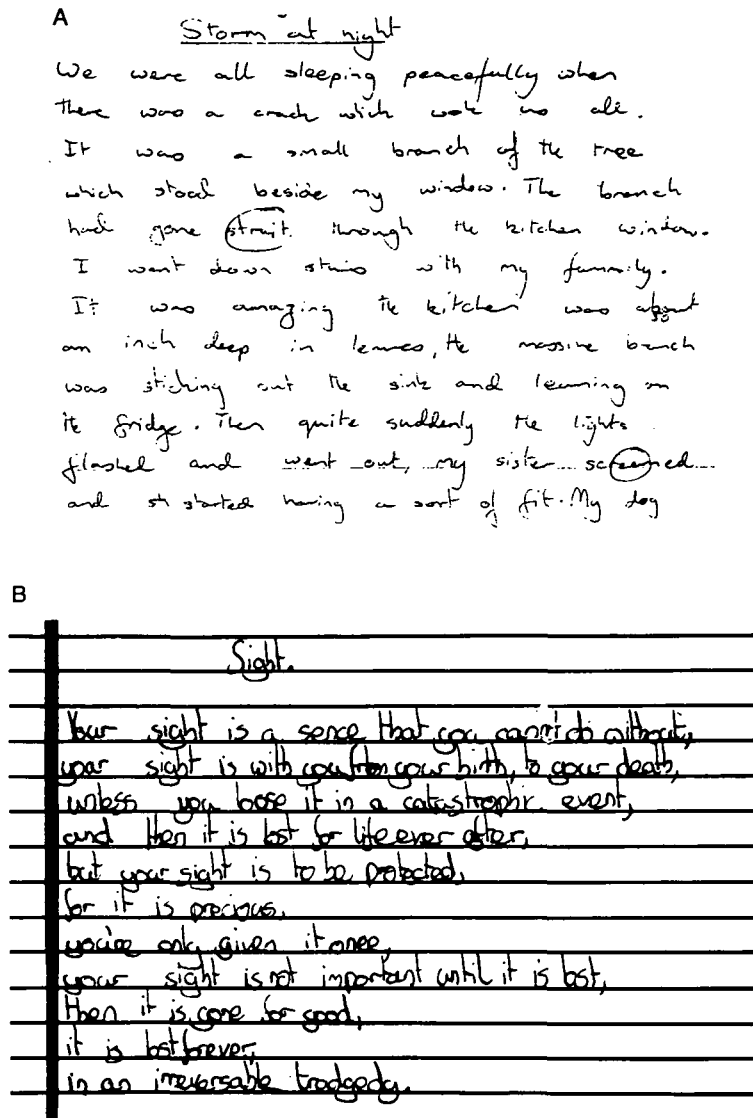 A
Storm at night
We were all sleeping peacefully when
there was a crack which woke us all.
It was a small branch of the tree
which stood beside my window. The branch
had gone strait through the kitchen window.
I went down stairs with my fammily.
It was amazing the kitchen was about
an inch deep in leaves, the massive branch
was sticking out the sink and leaning on
the fridge. Then quite suddenly the lights
flashed and went out, my sister screemed
and started having a sort of fit. My dog
B
Sight.
Your sight is a sence that you cannt do without,
your sight is with you from your birth, to your death,
unless you loose it in a catastrophic event,
and then it is lost for life ever after,
but your sight is to be protected,
for it is precious,
you're only given it once,
your sight is not important until it is lost,
then it is gone for good,
it is lost forever,
in an irreversable tradgedy.